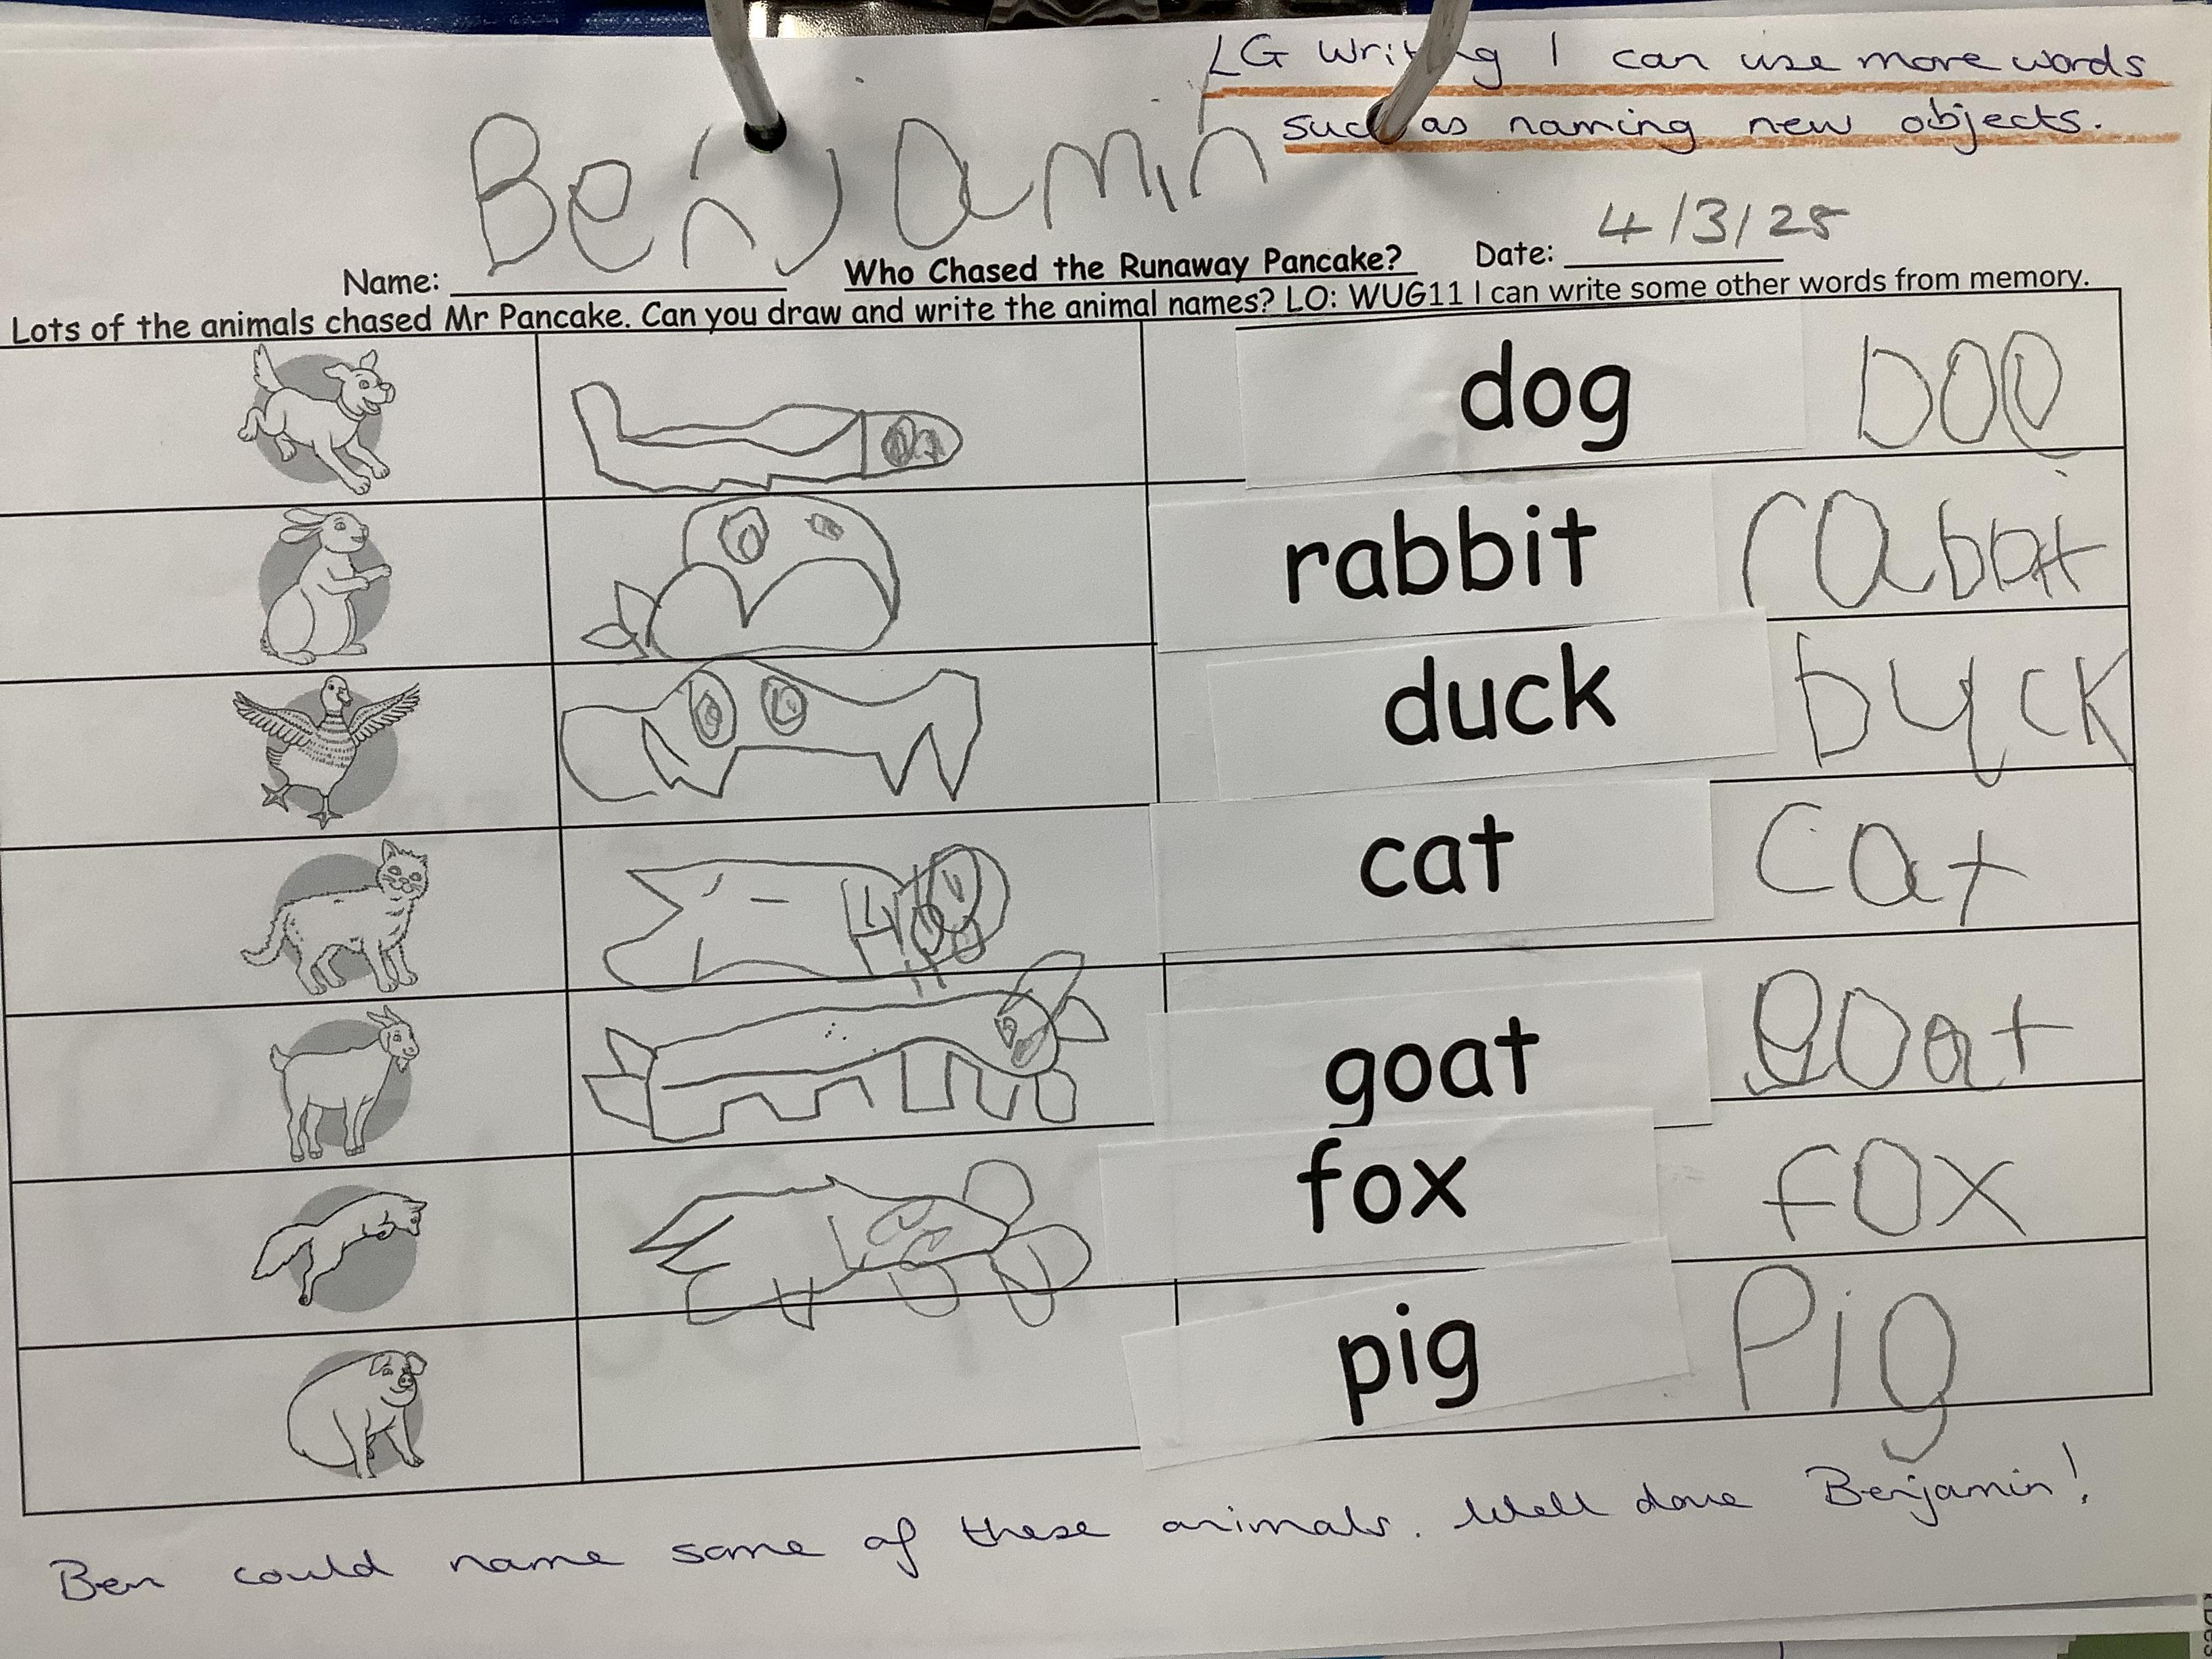 LG Writing I can use more words
such as naming new objects.
Benjamin
Name: Who Chased the Runaway Pancake? Date: 4/3/25
Lots of the animals chased Mr Pancake. Can you draw and write the animal names? LO: WUG11 I can write some other words from memory.
dog DOQ
rabbit rabbit
duck Duck
cat cat
goat goat
fox fox
pig Pig
Ben could name some of these animals. Well done Benjamin!